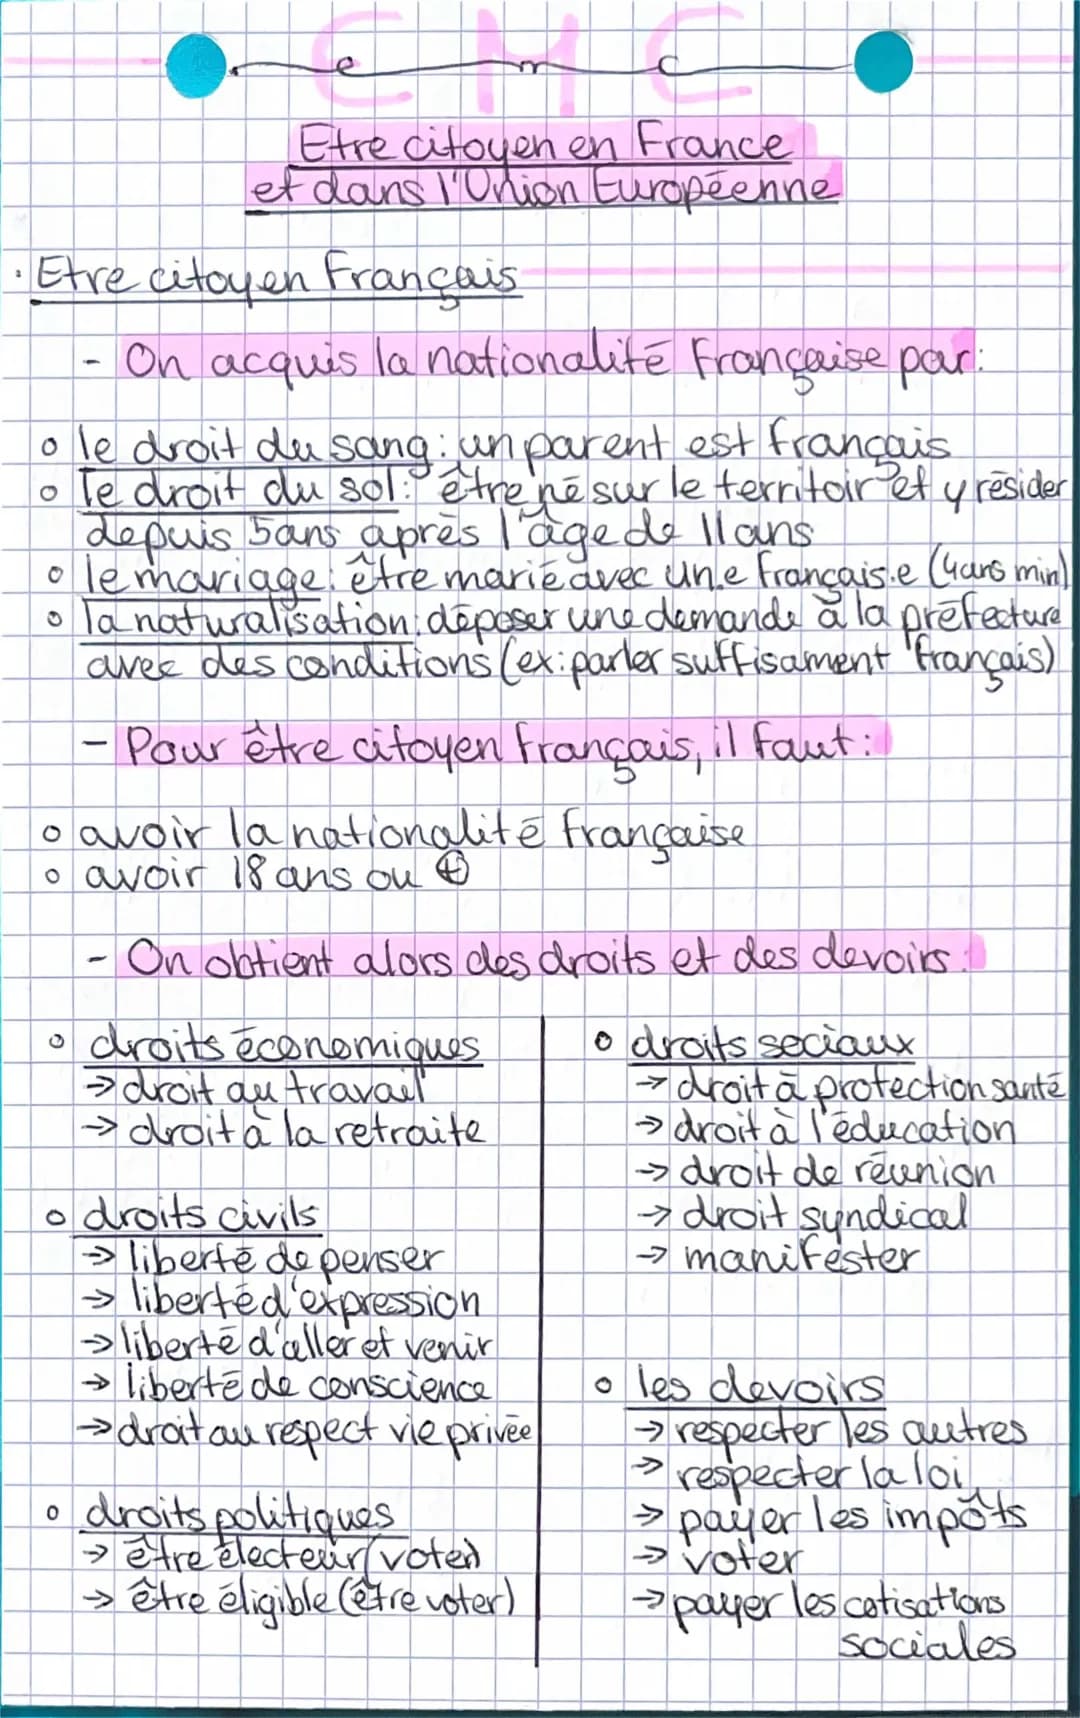 EMC
e m c
Etre citoyen en France
et dans l'Union Européenne
· Etre citoyen Français
- On acquis la nationalité Française par:
o le droit du sang: un parent est français
o le droit du sol: être né sur le territoir et y résider
depuis 5ans après l'âge de 11ans
o le mariage: être marié avec un.e français.e (4ans min)
o la naturalisation: déposer une demande à la préfecture
avec des conditions (ex: parler suffisament français)
- Pour être citoyen français, il faut:
o avoir la nationalité française
o avoir 18 ans ou +
- On obtient alors des droits et des devoirs:
o droits économiques
→ droit au travail
→ droit à la retraite
o droits civils
→ liberté de penser
→ liberté d'expression
→ liberté d'aller et venir
→ liberté de conscience
→ droit au respect vie privée
o droits politiques
→ être électeur (voter)
→ être éligible (être voter)
o droits sociaux
→ droit à protection santé
→ droit à l'éducation
→ droit de réunion
→ droit syndical
→ manifester
o les devoirs
→ respecter les autres
→ respecter la loi
→ payer les impôts
→ voter
→ payer les cotisations
sociales